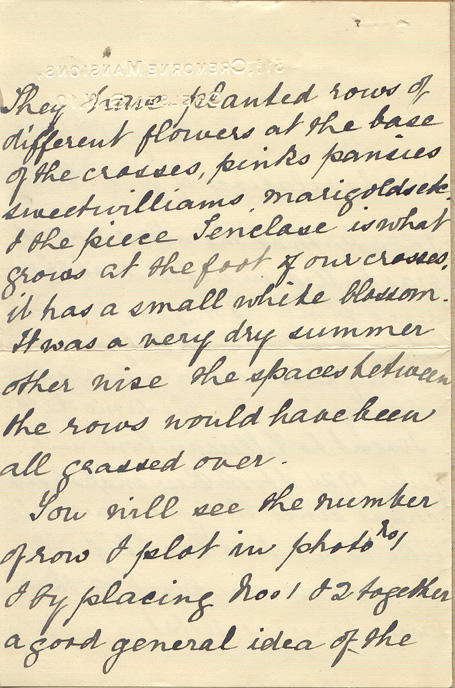 They have planted rows of
different flowers at the base
of the crosses, pinks pansies
sweetwilliams, marigolds etc.
& the piece I enclose is what
grows at the foot of our crosses,
it has a small white blossom.
It was a very dry summer
other wise the spaces between
the rows would have been
all grassed over.
You will see the number
of row & plot in photo No 1
& by placing Nos 1 & 2 together
a good general idea of the